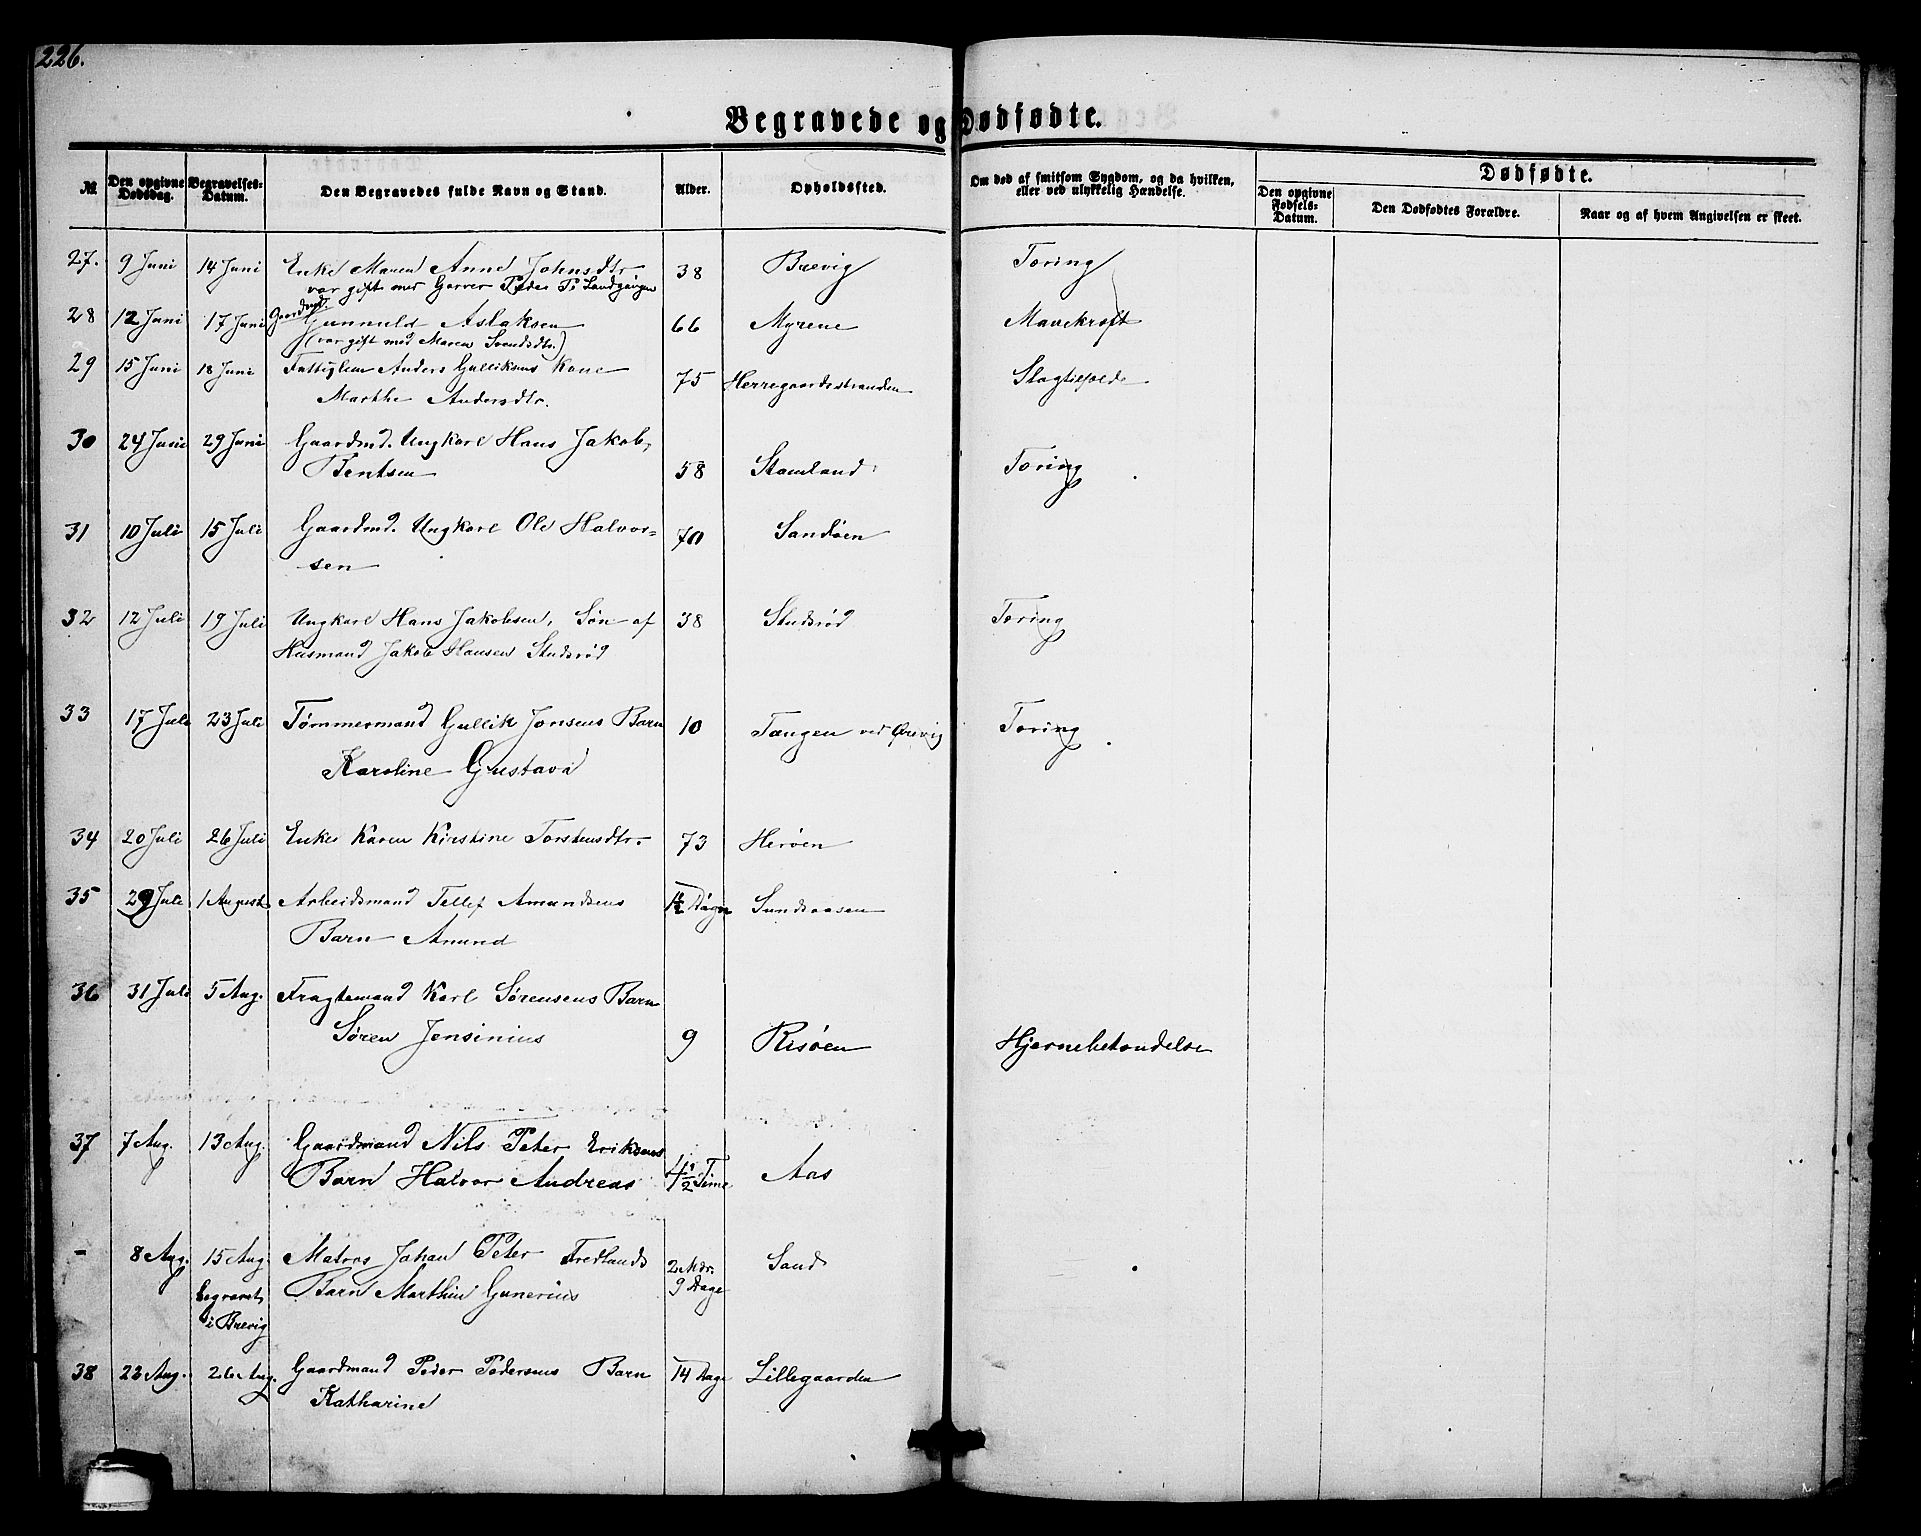 226.
Begravede og Dødfødte.
№
Den opgivne Dødsdag.
Begravelses-Datum.
Den Begravedes fulde Navn og Stand.
Alder.
Opholdssted.
Om død af smitsom Sygdom, og da hvilken, eller ved ulykkelig Hændelse.
Dødfødte.
Den opgivne Fødsels-Datum.
Den Dødfødtes Forældre.
Naar og af hvem Angivelsen er skeet.
27. 9 Juni 14 Juni Enke Maren Anne Johnsdtr. 38 Brevig Tæring
var gift med Garver Peder
28 12 Juni 17 Juni Gaardmd. Gunnuld Aslaksen 66 Myrene Mavekræft
(var gift med Maren Svendsdtr.)
29 15 Juni 18 Juni Fattiglem Anders Gulliksens Kone 75 Herregaardsstranden Slagtilfælde
Marthe Andersdtr.
30 24 Juni 29 Juni Gaardmd. Ungkarl Hans Jakob
Bentsen 58 Stamland Tæring
31 10 Juli 15 Juli Gaardmd. Ungkarl Ole Halvor=
sen 70 Sandøen
32 12 Juli 19 Juli Ungkarl Hans Jakobsen, Søn af 38 Studsrød Tæring
Husmand Jakob Hansen Studsrød
33 17 Juli 23 Juli Tømmermand Gullik Jonsens Barn 10 Tangen ved Brevig Tæring
Karoline Gustava
34 20 Juli 26 Juli Enke Karen Kirstine Torstensdtr. 73 Herøen
35 29 Juli 1 August Arbeidsmand Tellef Amundsens 1½ Døgn Sundsaasen
Barn Anund
36 31 Juli 5 Aug. Fragtemand Karl Sørensens Barn
Søren Jensinius 9 Risøen Hjernebetændelse
37 7 Aug. 13 Aug. Gaardmand Nils Peter Eriksens
Barn Halvor Andreas 4½ Time Aas
- 8 Aug. 15 Aug. Matros Johan Peter Fredlunds 2 Mdr. Sand
begravet Barn Marthin Gunerius 9 Dage
i Brevig
38 23 Aug. 26 Aug. Gaardmand Peder Pedersens Barn 14 Dage Lillegaarden
Katharine